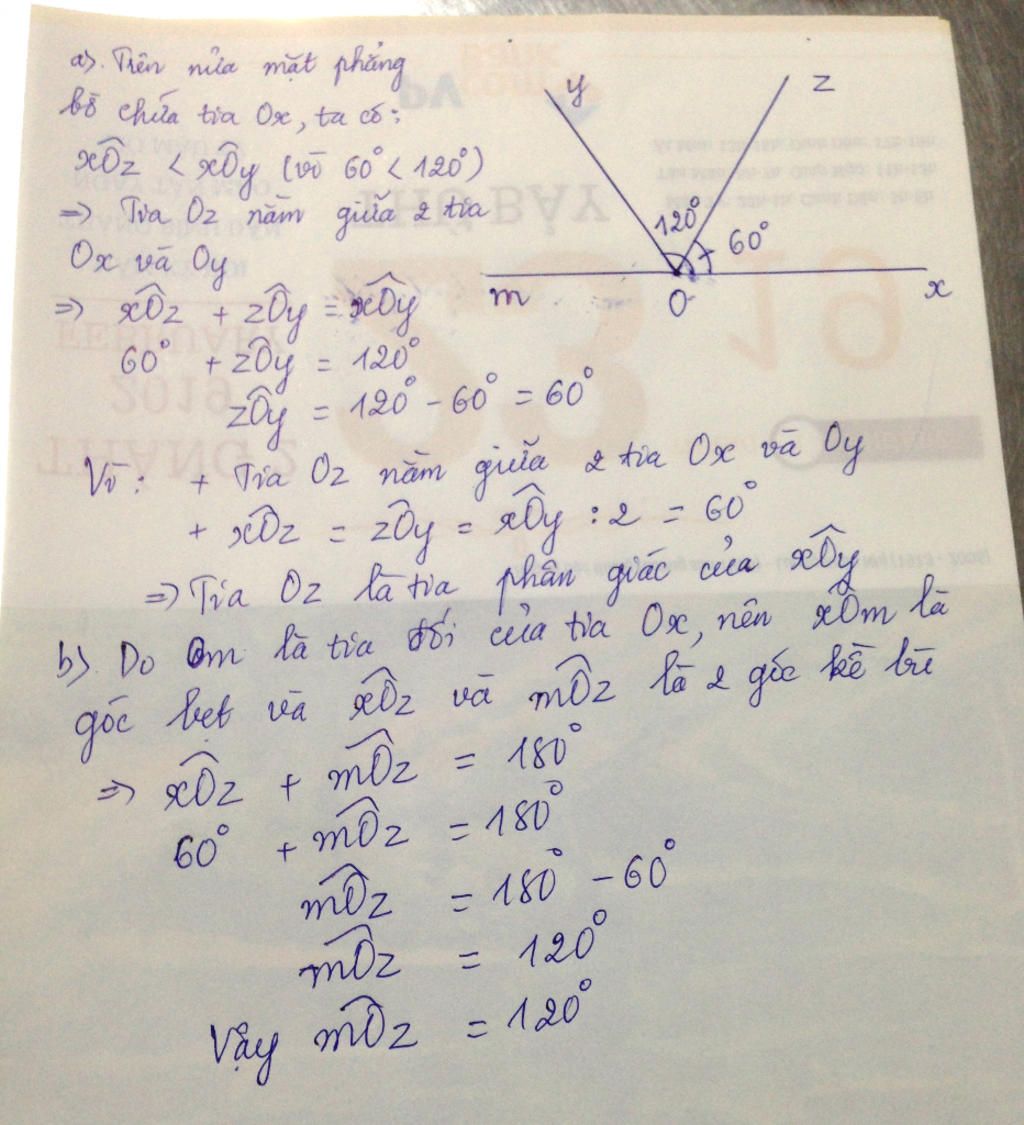 a). Trên nửa mặt phẳng
bờ chứa tia Ox, ta có:
xÔz < xÔy (vì 60° < 120°)
=> Tia Oz nằm giữa 2 tia
Ox và Oy
=> xÔz + zÔy = xÔy
60° + zÔy = 120°
zÔy = 120° - 60° = 60°
Vì: + Tia Oz nằm giữa 2 tia Ox và Oy
+ xÔz = zÔy = xÔy : 2 = 60°
=> Tia Oz là tia phân giác của xÔy
b). Do Om là tia đối của tia Ox, nên xÔm là
góc bẹt và xÔz và mÔz là 2 góc kề bù
=> xÔz + mÔz = 180°
60° + mÔz = 180°
mÔz = 180° - 60°
mÔz = 120°
Vậy mÔz = 120°
y
z
120°
60°
m
O
x
THỨ BẢY
23
19
FEBRUARY
2019
THÁNG 2
PV
com
BANK